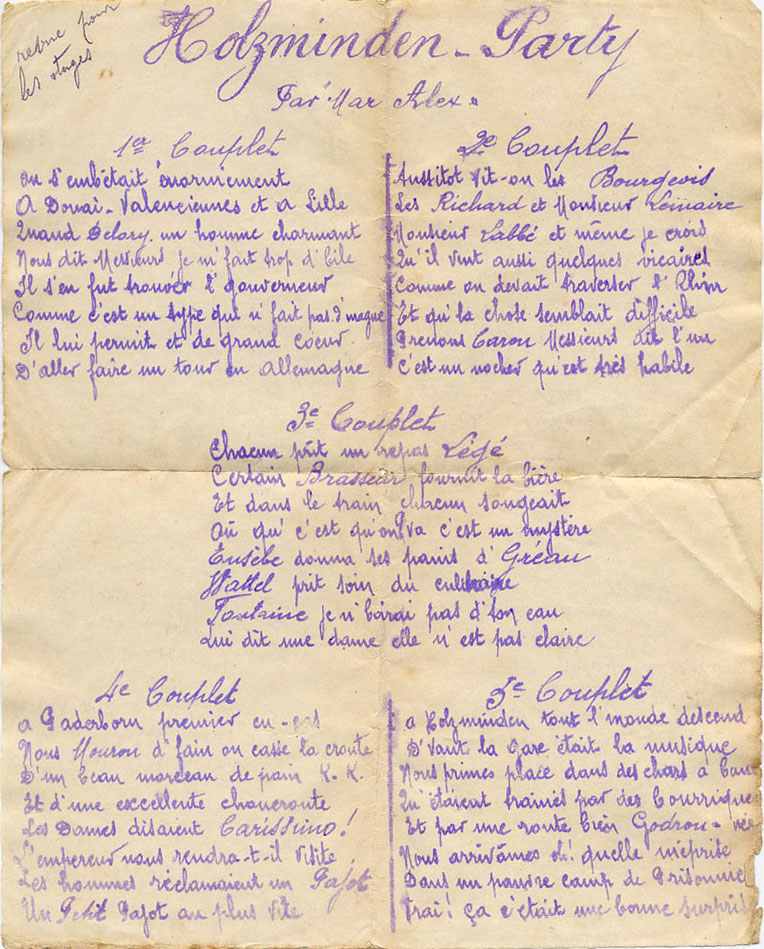 revue pour
les otages
Holzminden-Party
Par Mar Alex
1er Couplet
On s'embêtait énormément
A Douai-Valenciennes et a Lille
Quand Delory un homme charmant
Nous dit Messieurs je m'fait trop d'bile
Il s'en fut trouver l'gouverneur
Comme c'est un type qui n'fait pas d'magne
Il lui permit et de grand coeur
D'aller faire un tour en Allemagne
2e Couplet
Aussitot vit-on les Bourgeois
Les Richard et Monsieur Lemaire
Monsieur Labbé et même je crois
Qu'il vint aussi quelques vicaires
Comme on devait traverser l'Rhin
Et qu'la chose semblait difficile
Prenons Caron Messieurs dit l'un
C'est un nocher qu'est très habile
3e Couplet
Chacun prit un repas Légé
Certain Brasseur fournit la bière
Et dans le train chacun songeait
Où qu'c'est qu'on va c'est un mystère
Eusèbe donna ses pains d'Gréau
Wattel prit soin du culinaire
Fontaine je n'boirai pas d'ton eau
Qui dit une dame elle n'est pas claire
4e Couplet
a Paderborn premier en-cas
Nous Mouron d'faim on casse la croute
D'un beau morceau de pain K.K.
Et d'une excellente choucroute
Les Dames disaient Carissimo!
L'empereur nous rendra-t-il visite
Les hommes réclamaient un Pajot
Un Petit Pajot au plus vite
5e Couplet
a Holzminden tout l'monde descend
D'vant la Gare était la musique
Nous primes place dans des chars a banc
Qu'étaient trainés par des bourriques
Et par une route bien Godron-née
Nous arrivâmes oh! quelle méprise
Dans un pauvre camp de Prisonnie
Vrai! ça c'était une bonne surpris